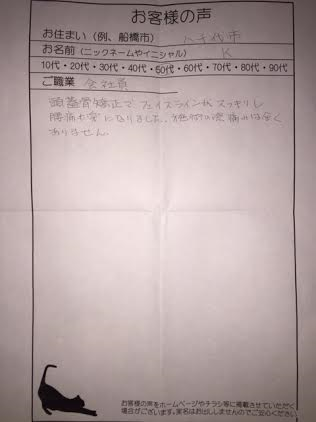 お客様の声
お住まい（例、船橋市） 八千代市
お名前（ニックネームやイニシャル） K
10代・20代・30代・40代・50代・60代・70代・80代・90代
ご職業 会社員
頭蓋骨矯正でフェイスラインがスッキリし
腰痛も楽になりました。施術の痛みは全く
ありません。
お客様の声をホームページやチラシ等に掲載させていただく
場合がございます。実名はお出ししませんのでご安心ください